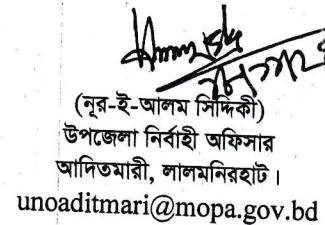 (নূর-ই-আলম সিদ্দিকী)
উপজেলা নির্বাহী অফিসার
আদিতমারী, লালমনিরহাট।
unoaditmari@mopa.gov.bd